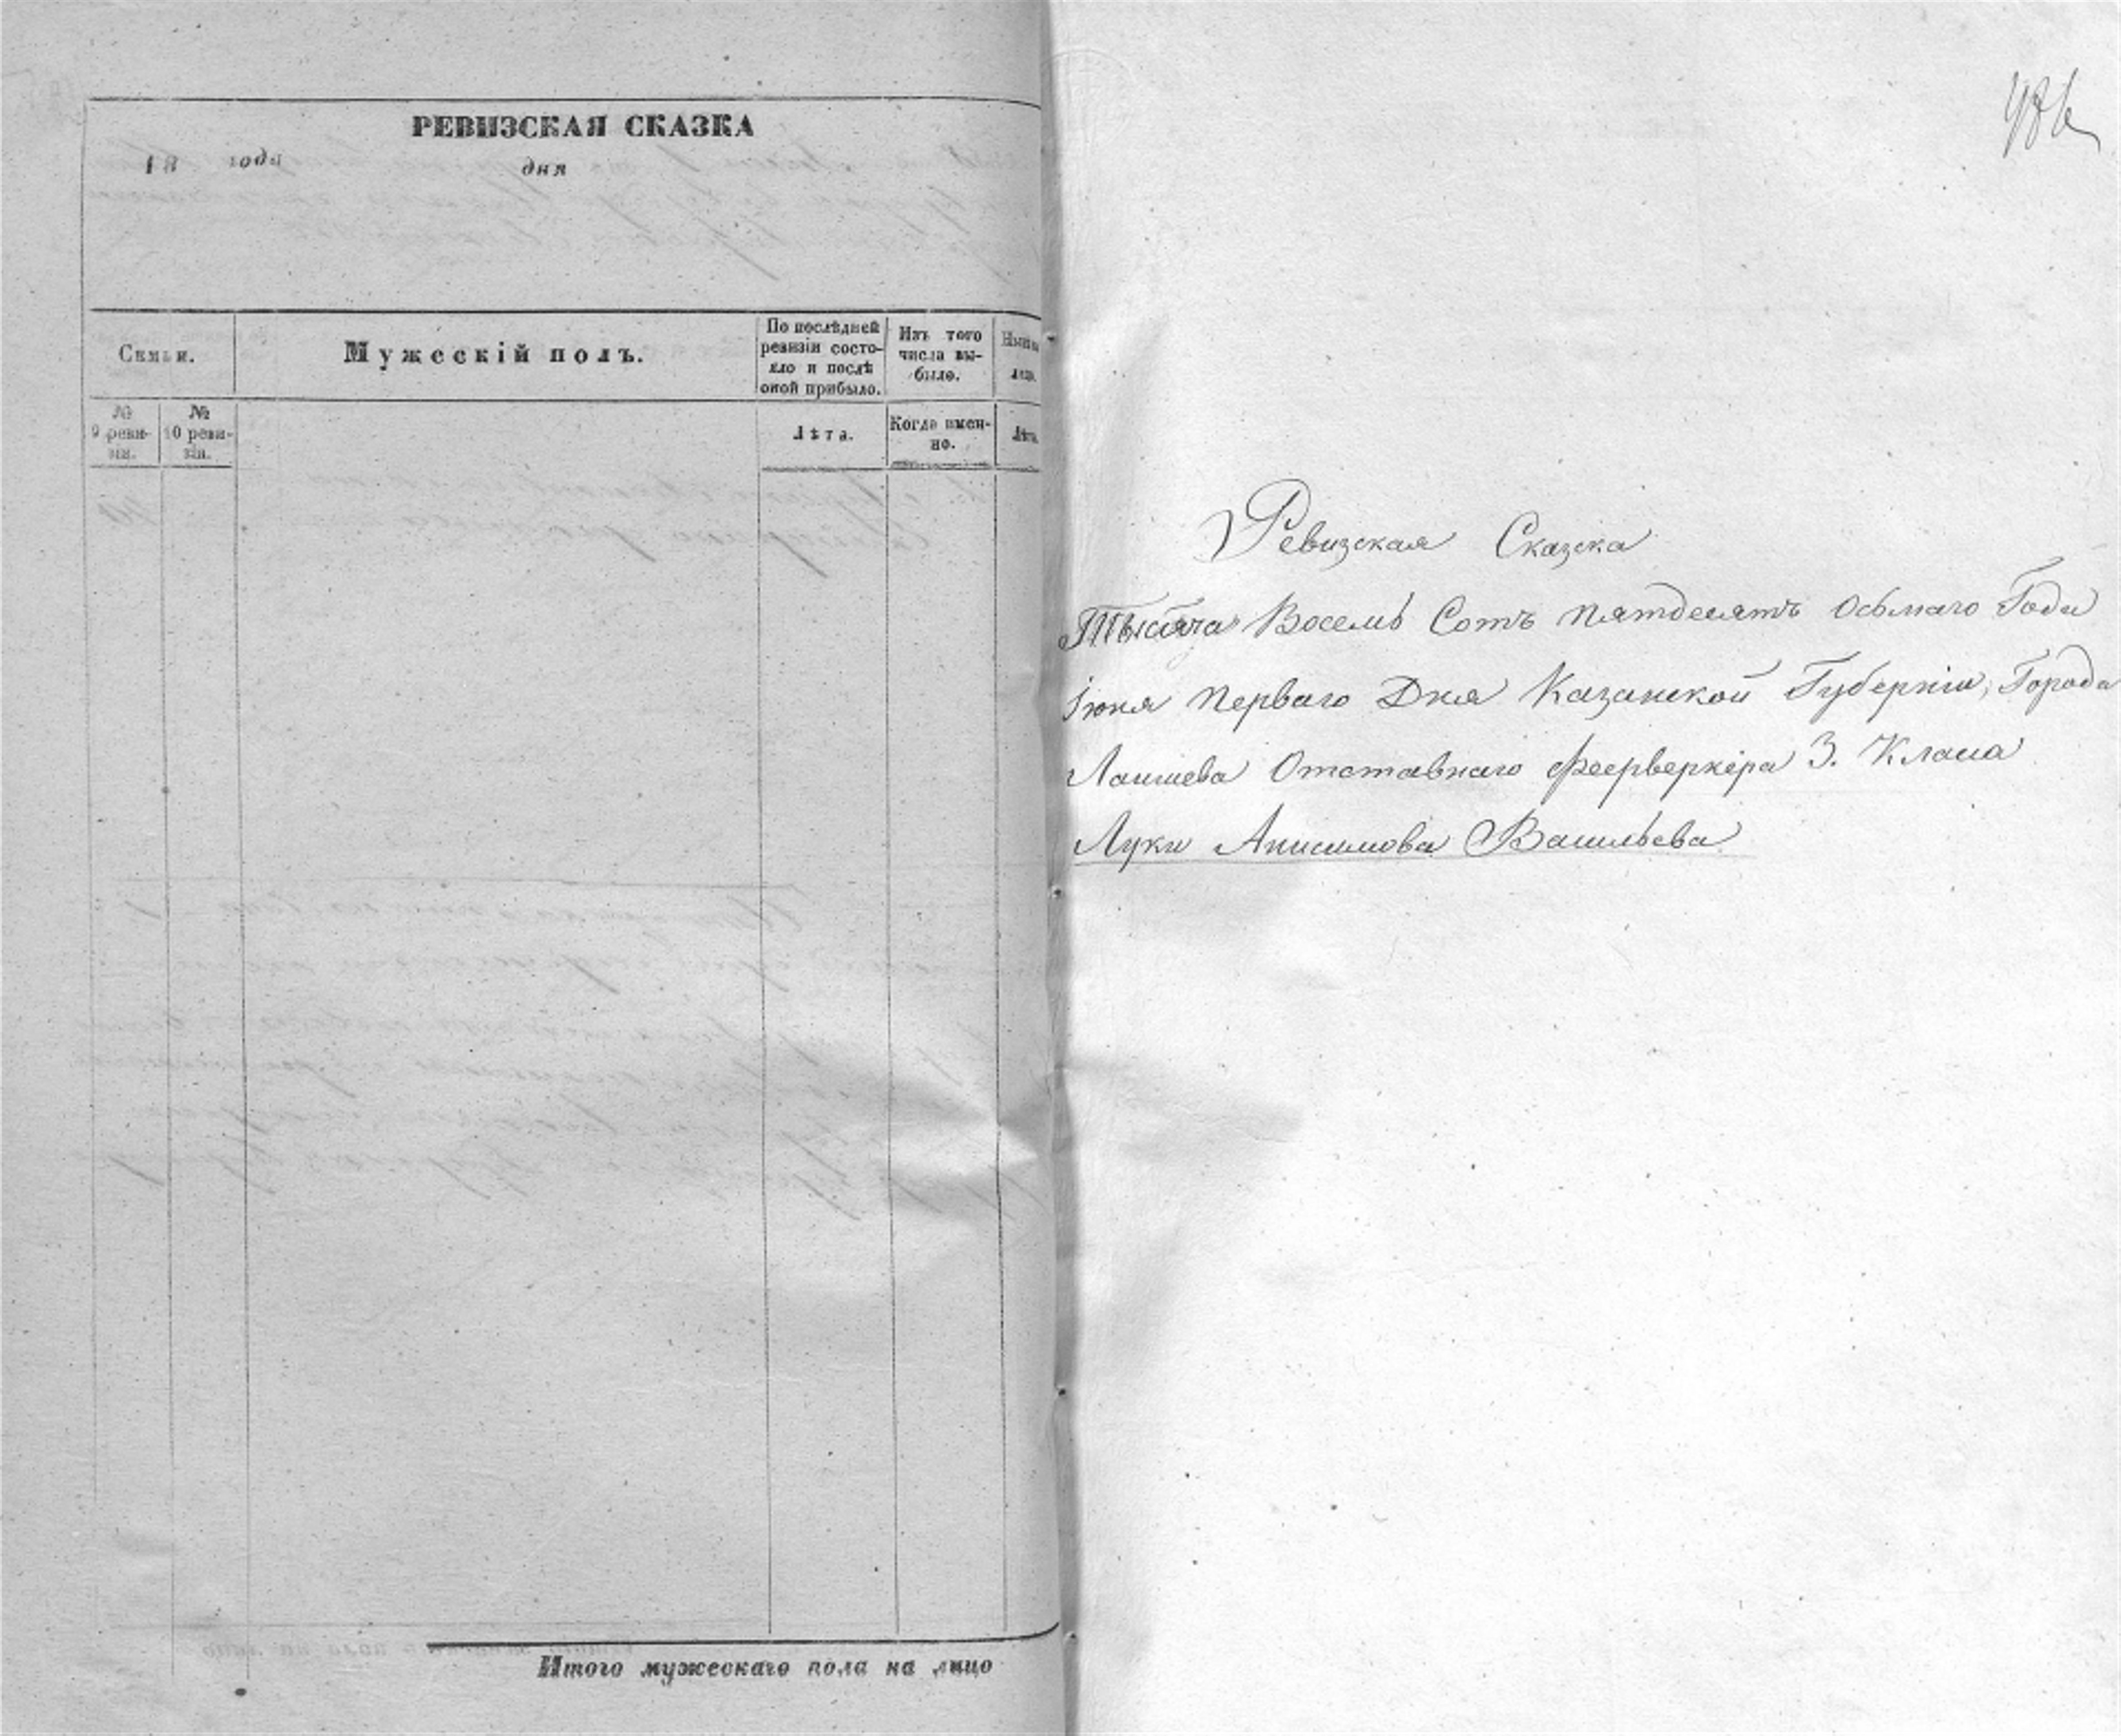 РЕВИЗСКАЯ СКАЗКА
18 года дня
Семьи.
Мужескій полъ.
По послѣдней ревизіи состо-
яло и послѣ
оной прибыло.
Изъ того
числа вы-
было.
№
9 реви-
зіи.
№
10 реви-
зіи.
Лѣта.
Когда имен-
но.
Лѣта.
Итого мужескаго пола на лицо
Ревизская Сказка
Тысяча Восемь Сотъ пятдесятъ осьмаго Года
Іюня перваго Дня Казанской Губерніи, Города
Лаишева Отставнаго феерверкера 3. Класа
Луки Анисимова Васильева